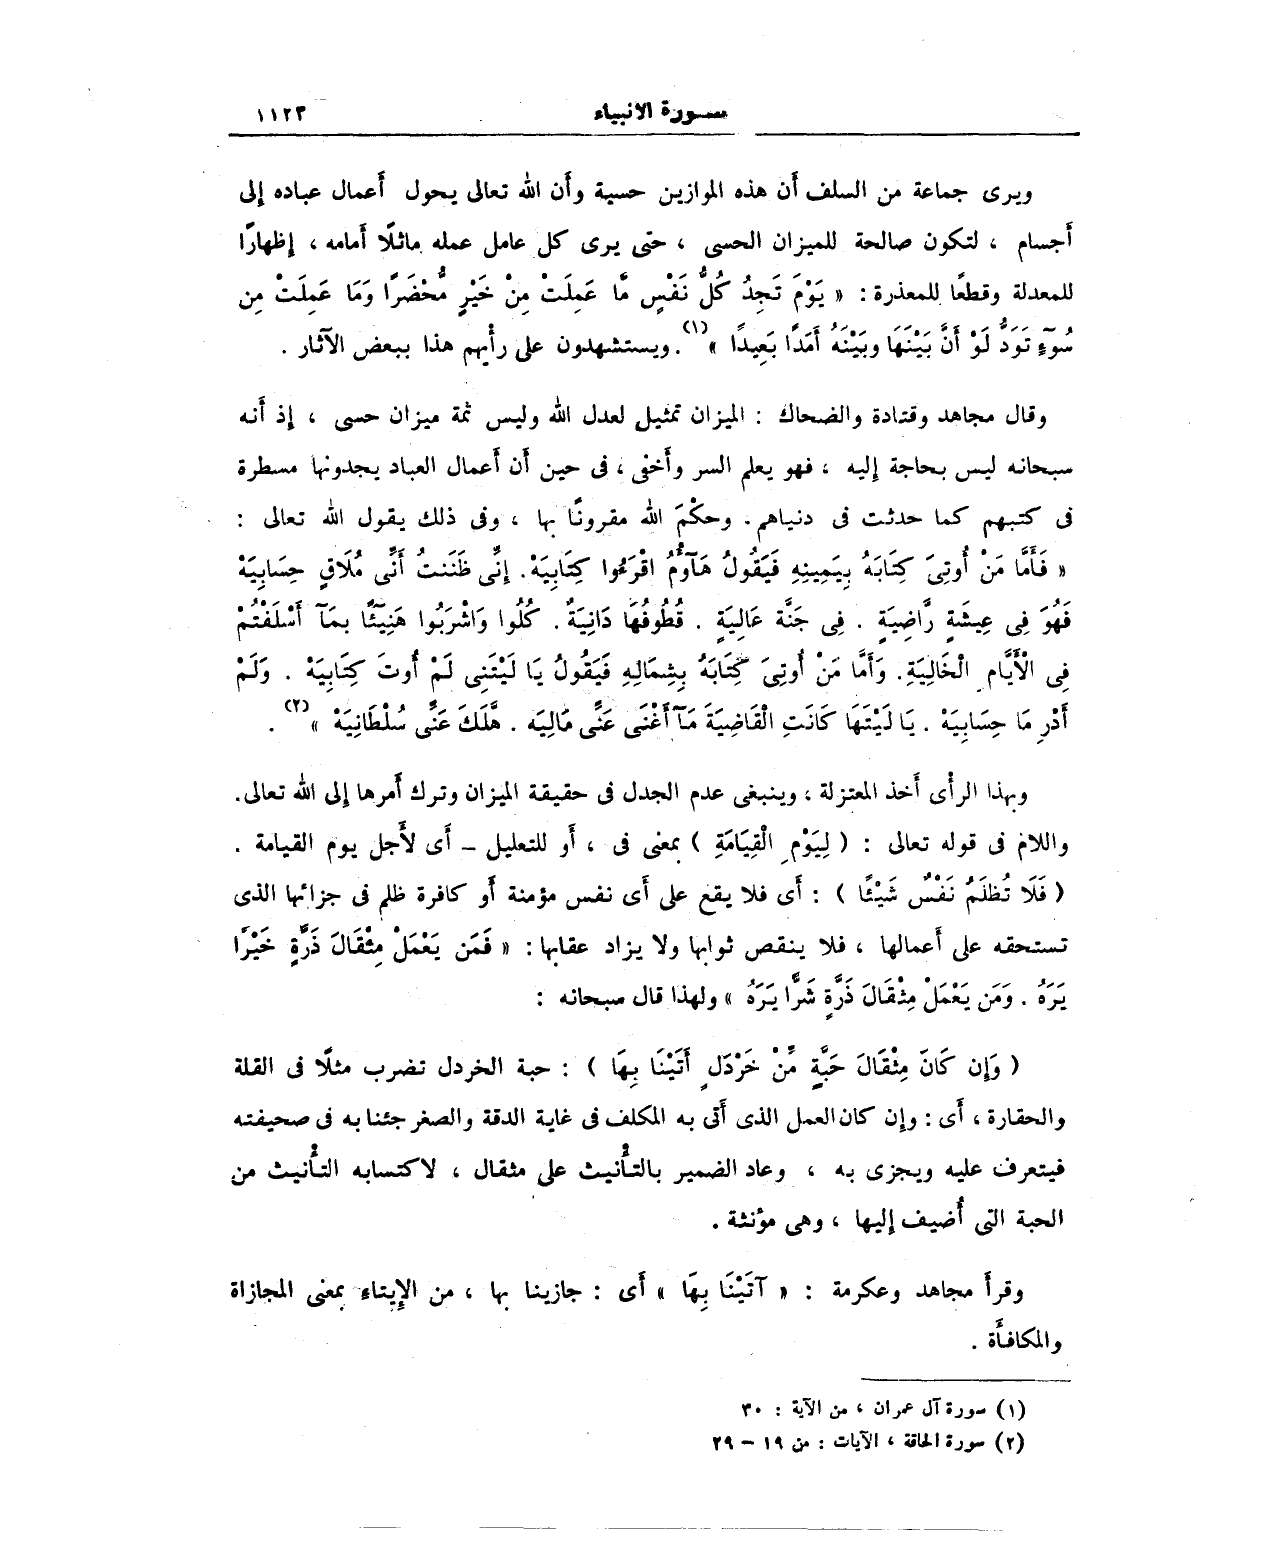 سورة الأنبياء ١١٢٣
ويرى جماعة من السلف أن هذه الموازين حسية وأن الله تعالى يحول أعمال عباده إلى
أجسام ، لتكون صالحة للميزان الحسى ، حتى يرى كل عامل عمله ماثلًا أمامه ، إظهارًا
للمعدلة وقطعًا للمعذرة : « يَوْمَ تَجِدُ كُلُّ نَفْسٍ مَّا عَمِلَتْ مِنْ خَيْرٍ مُّحْضَرًا وَمَا عَمِلَتْ مِن
سُوٓءٍ تَوَدُّ لَوْ أَنَّ بَيْنَهَا وبَيْنَهُ أَمَدًا بَعِيدًا »(١). ويستشهدون على رأيهم هذا ببعض الآثار .
وقال مجاهد وقتادة والضحاك : الميزان تمثيل لعدل الله وليس ثمة ميزان حسى ، إذ أنه
سبحانه ليس بحاجة إليه ، فهو يعلم السر وأخفى ، فى حين أن أعمال العباد يجدونها مسطرة
فى كتبهم كما حدثت فى دنياهم . وحكْمَ الله مقرونًا بها ، وفى ذلك يقول الله تعالى :
« فَأَمَّا مَنْ أُوتِىَ كِتَابَهُ بِيَمِينِهِ فَيَقُولُ هَآؤُمُ اقْرَءُوا كِتَابِيَهْ . إِنِّى ظَنَنتُ أَنِّى مُلَاقٍ حِسَابِيَهْ
فَهُوَ فِى عِيشَةٍ رَّاضِيَةٍ . فِى جَنَّة عَالِيَةٍ . قُطُوفُهَا دَانِيَةٌ . كُلُوا وَاشْرَبُوا هَنِيٓئًا بِمَآ أَسْلَفْتُمْ
فِى الْأَيَّامِ الْخَالِيَةِ . وَأَمَّا مَنْ أُوتِىَ كِتَابَهُ بِشِمَالِهِ فَيَقُولُ يَا لَيْتَنِى لَمْ أُوتَ كِتَابِيَهْ . وَلَمْ
أَدْرِ مَا حِسَابِيَهْ . يَا لَيْتَهَا كَانَتِ الْقَاضِيَةَ مَآ أَغْنَى عَنِّى مَالِيَه . هَّلَكَ عَنِّى سُلْطَانِيَهْ »(٢) .
وبهذا الرأى أخذ المعتزلة ، وينبغى عدم الجدل فى حقيقة الميزان وترك أمرها إلى الله تعالى .
واللام فى قوله تعالى : ( لِيَوْمِ الْقِيَامَةِ ) بمعنى فى ، أو للتعليل – أى لأجل يوم القيامة .
( فَلَا تُظْلَمُ نَفْسٌ شَيْئًا ) : أى فلا يقع على أى نفس مؤمنة أو كافرة ظلم فى جزائها الذى
تستحقه على أعمالها ، فلا ينقص ثوابها ولا يزاد عقابها : « فَمَن يَعْمَلْ مِثْقَالَ ذَرَّةٍ خَيْرًا
يَرَهُ . وَمَن يَعْمَلْ مِثْقَالَ ذَرَّةٍ شَرًّا يَرَهُ » ولهذا قال سبحانه :
( وَإِن كَانَ مِثْقَالَ حَبَّةٍ مِّنْ خَرْدَلٍ أَتَيْنَا بِهَا ) : حبة الخردل تضرب مثلًا فى القلة
والحقارة ، أى : وإن كان العمل الذى أتى به المكلف فى غاية الدقة والصغر جئنا به فى صحيفته
فيتعرف عليه ويجزى به ، وعاد الضمير بالتأنيث على مثقال ، لاكتسابه التأنيث من
الحبة التى أضيف إليها ، وهى مؤنثة .
وقرأ مجاهد وعكرمة : « آتَيْنَا بِهَا » أى : جازينا بها ، من الإيتاء بمعنى المجازاة
والمكافأة .
(١) سورة آل عمران ، من الآية : ٣٠
(٢) سورة الحاقة ، الآيات : من ١٩ – ٢٩